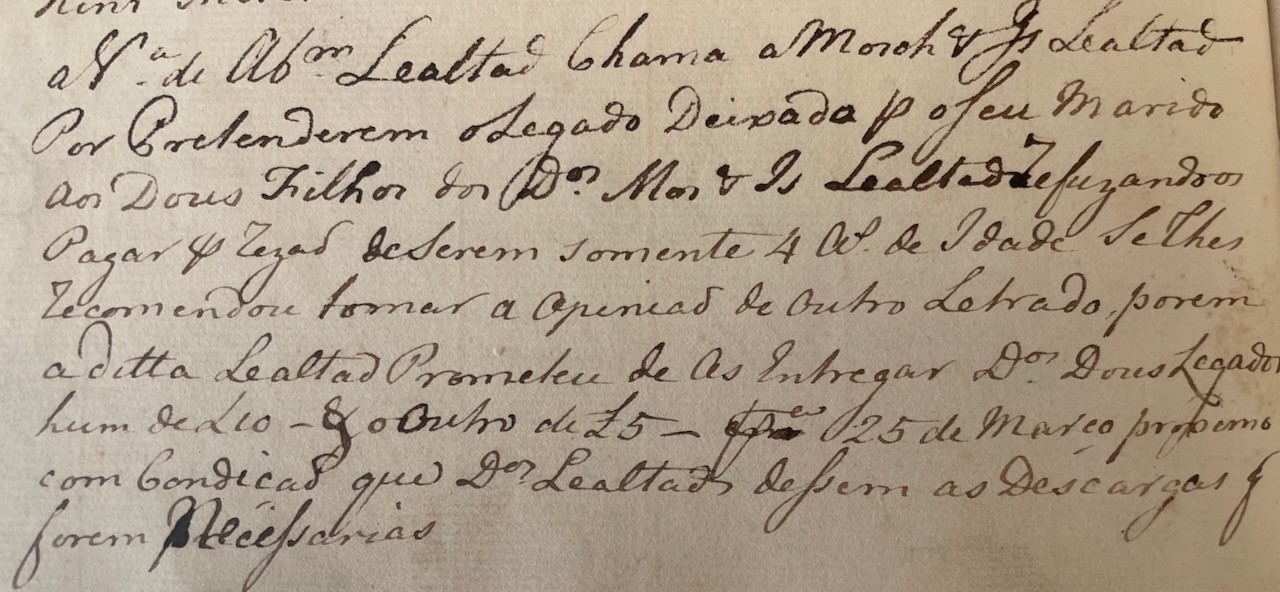 a V.ª de Abm Lealtad Chama a Moseh & Is Lealtad
Por Pretenderem o Legado Deixado p o seu Marido
aos Dous Filhos dos Dos. Mos & Is Lealtad Refuzandoos
Pagar p Rezaõ de Serem somente 4 As. de Idade Selhes
Recomendou tomar a Opiniaõ de Outro Letrado, porem
a ditta Lealtad Prometeu de As Entregar Dos. Dous Legados
hum de £10 - & o Outro de £5 - 25 de Março proximo
com Condicaõ que Dos Lealtads dessem as Descargas q
forem Necessarias